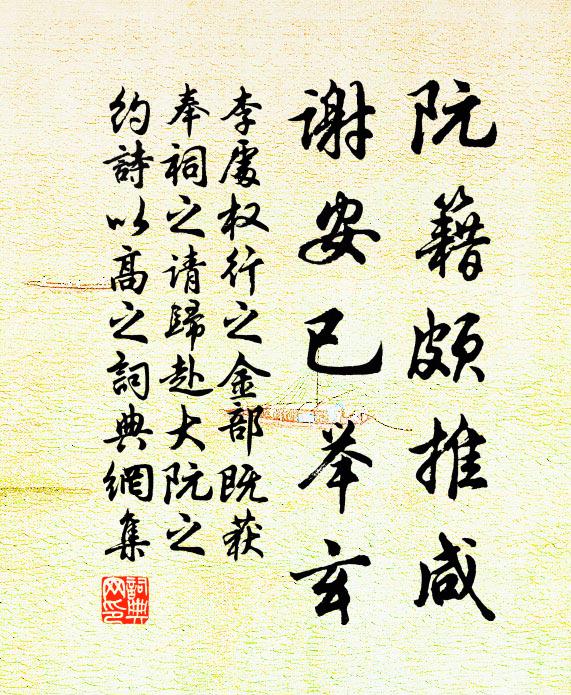 阮籍颇推咸
谢安已举玄
李處权行之金部既获
奉祠之请歸赴大阮之
约詩以高之詞典網集
詞典网印